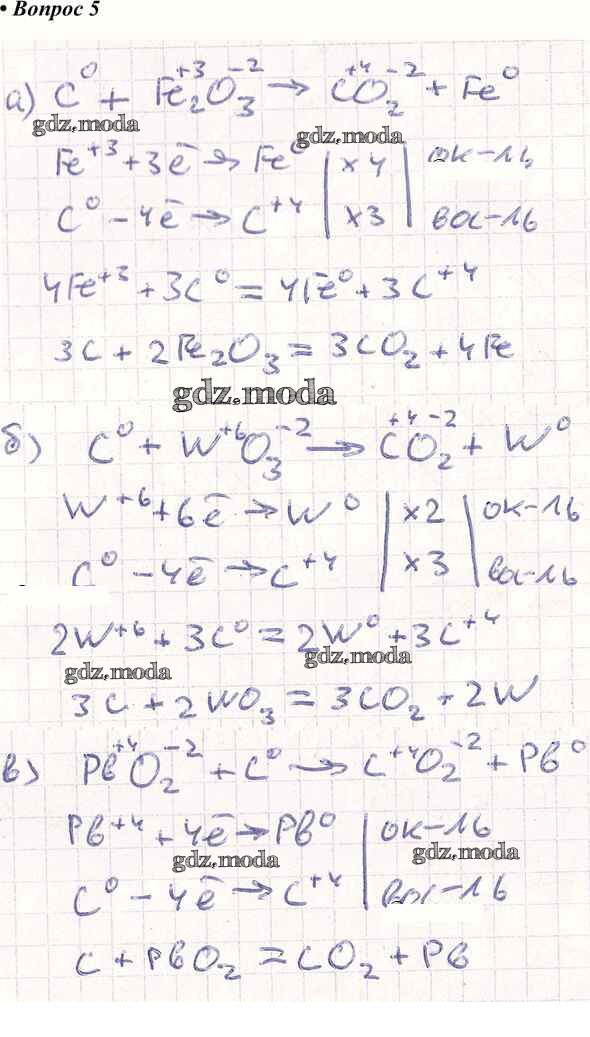 • Вопрос 5
а) C⁰ + Fe₂⁺³O₃⁻² → C⁺⁴O₂⁻² + Fe⁰
gdz.moda gdz.moda
Fe⁺³ + 3ē → Fe⁰ | ×4 | ок-ль
C⁰ - 4ē → C⁺⁴ | ×3 | вос-ль
4Fe⁺³ + 3C⁰ = 4Fe⁰ + 3C⁺⁴
3C + 2Fe₂O₃ = 3CO₂ + 4Fe
gdz.moda
б) C⁰ + W⁺⁶O₃⁻² → C⁺⁴O₂⁻² + W⁰
W⁺⁶ + 6ē → W⁰ | ×2 | ок-ль
C⁰ - 4ē → C⁺⁴ | ×3 | вос-ль
2W⁺⁶ + 3C⁰ = 2W⁰ + 3C⁺⁴
gdz.moda gdz.moda
3C + 2WO₃ = 3CO₂ + 2W
в) Pb⁺⁴O₂⁻² + C⁰ → C⁺⁴O₂⁻² + Pb⁰
Pb⁺⁴ + 4ē → Pb⁰ | ок-ль
gdz.moda gdz.moda
C⁰ - 4ē → C⁺⁴ | вос-ль
C + PbO₂ = CO₂ + Pb